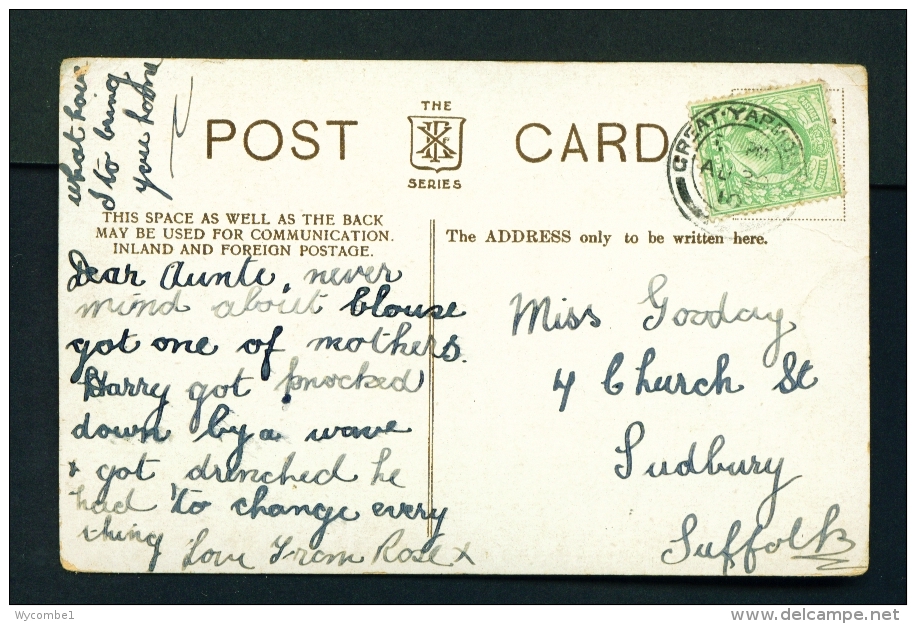 what have
I to bring
you home
POST CARD
THE
SERIES
THIS SPACE AS WELL AS THE BACK
MAY BE USED FOR COMMUNICATION.
INLAND AND FOREIGN POSTAGE.
The ADDRESS only to be written here.
GREAT·YARMO
PM
AU 2
10
Dear Aunte, never
mind about blouse
got one of mothers.
Harry got knocked
down by a wave
& got drenched he
had to change every
thing Love From Rose x
Miss Gooday
4 Church St
Sudbury
Suffolk
Wycombe1
delcampe.net